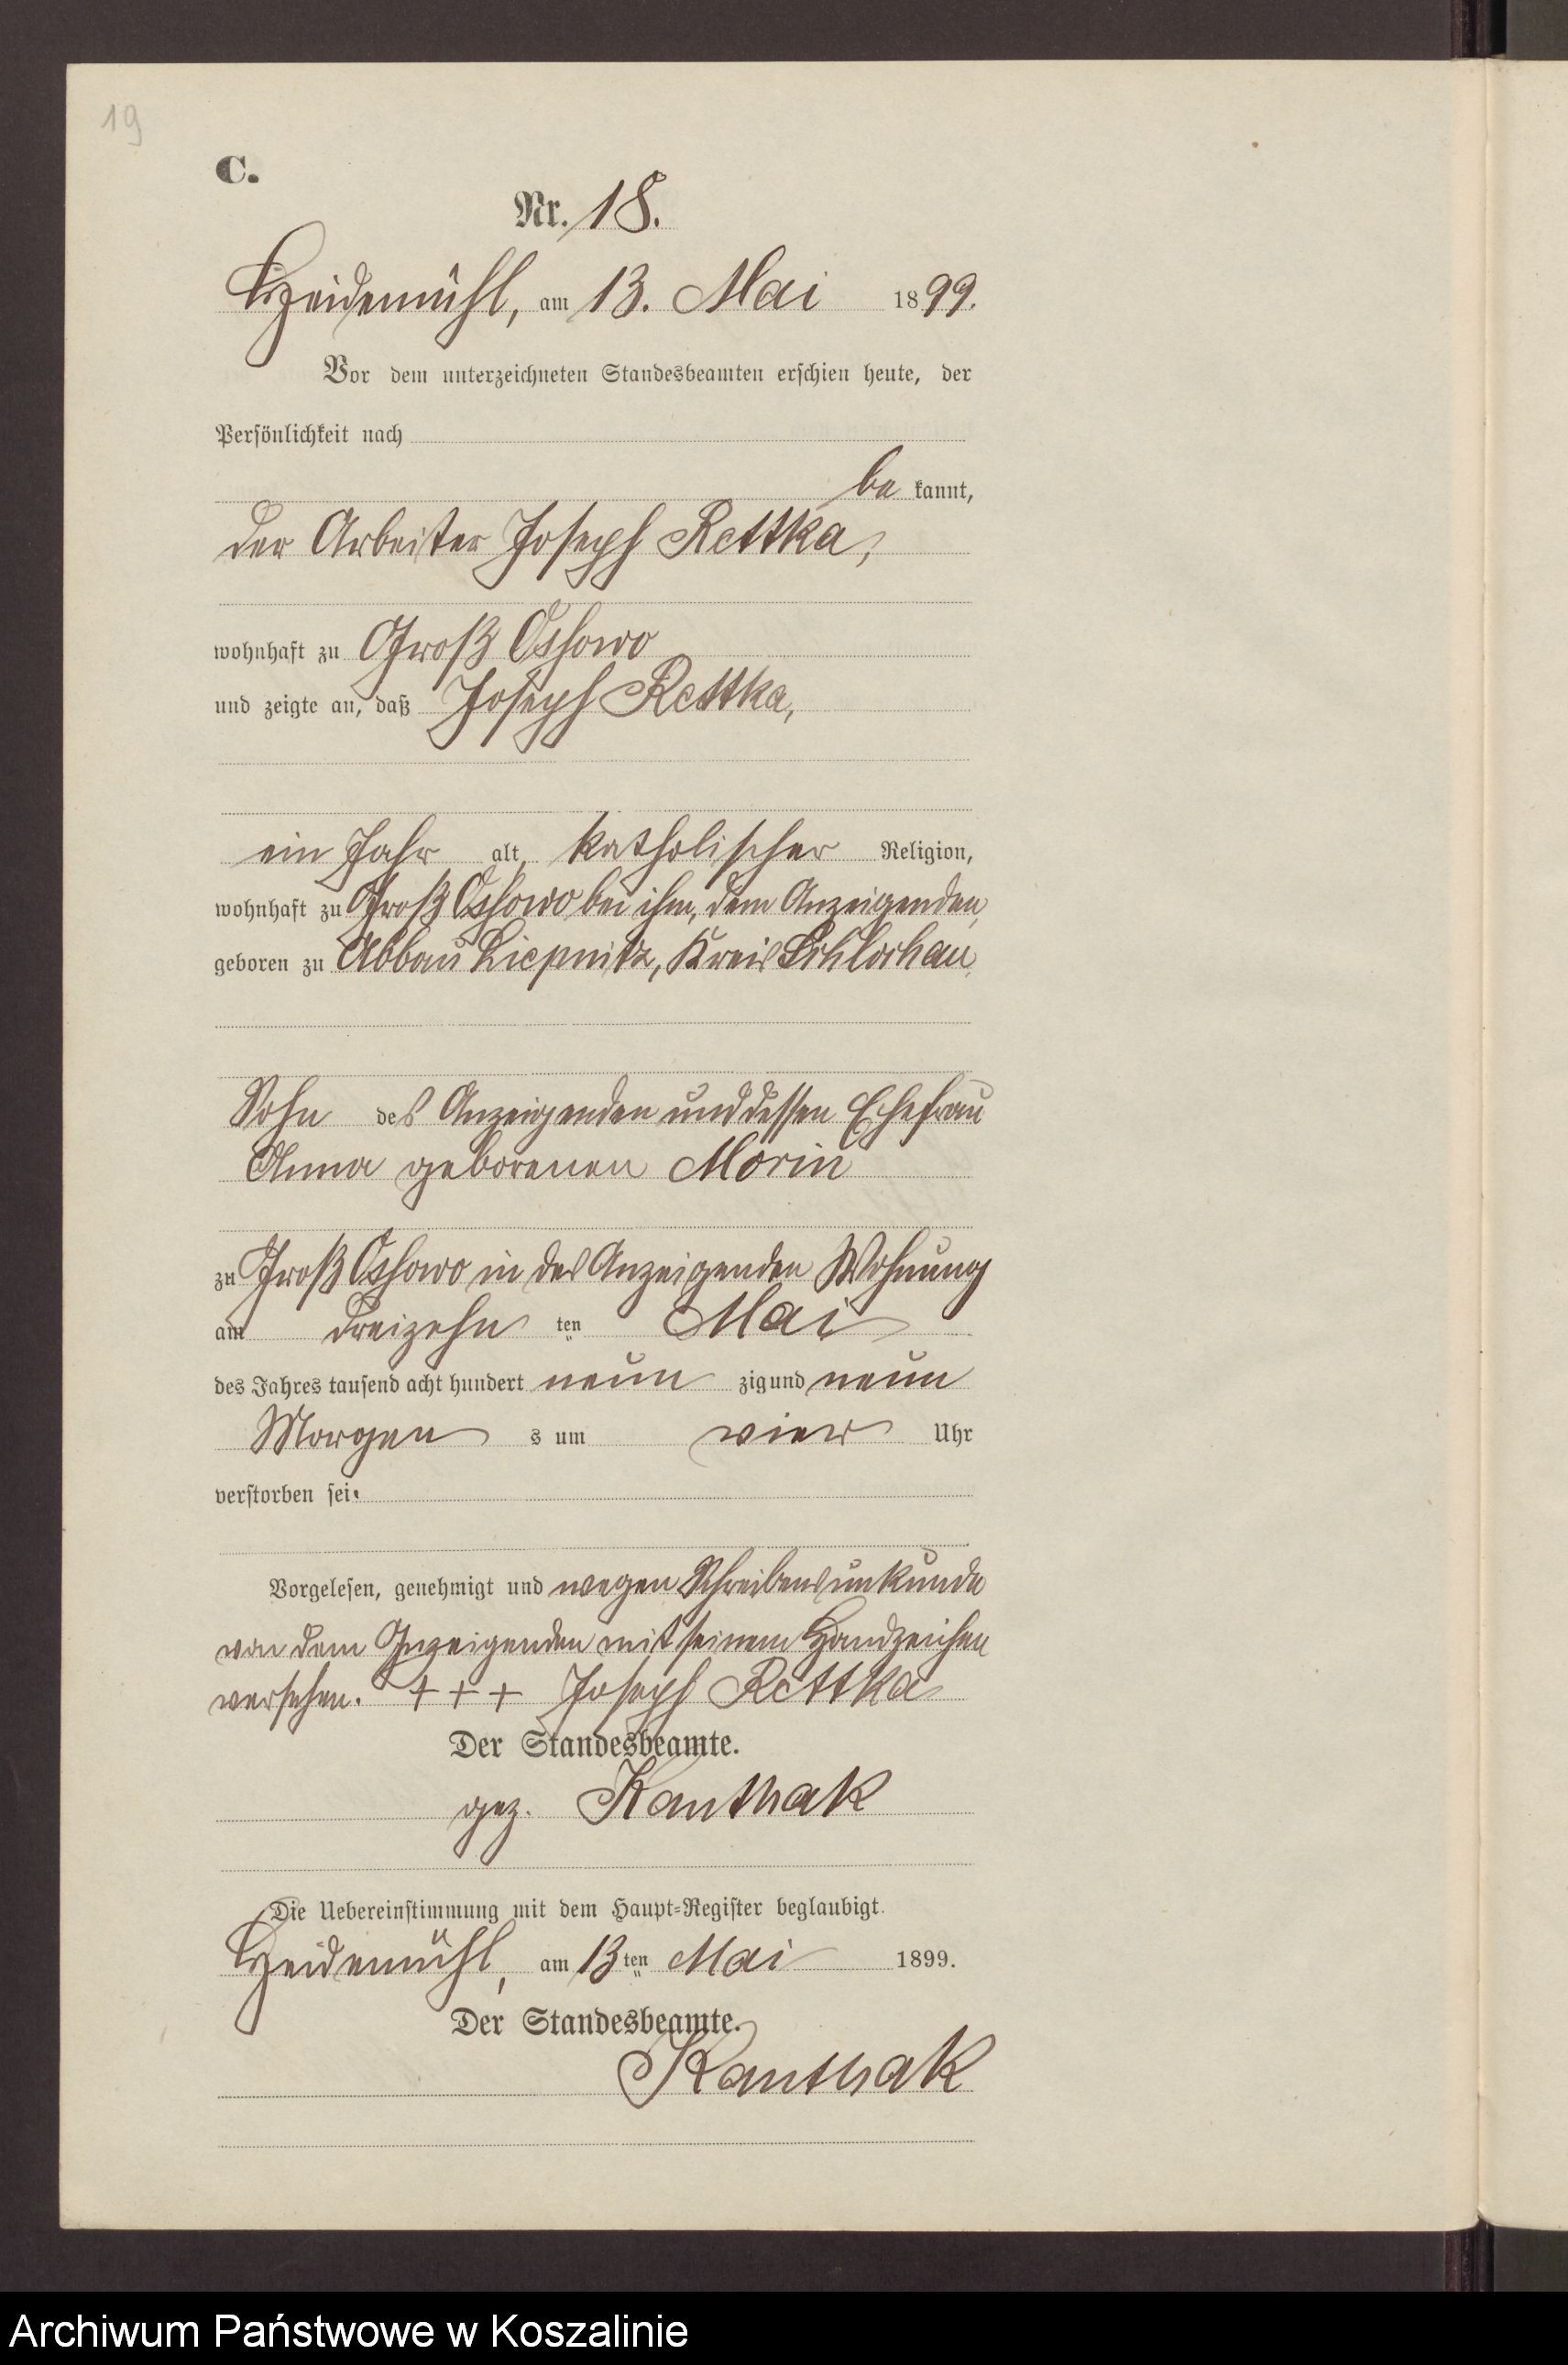 19
C.
Nr. 18.
Heidemühl, am 13. Mai 1899.
Vor dem unterzeichneten Standesbeamten erschien heute, der
Persönlichkeit nach
be kannt,
der Arbeiter Joseph Rettka,
wohnhaft zu Groß Ossowo
und zeigte an, daß Joseph Rettka,
ein Jahr alt, katholischer Religion,
wohnhaft zu Groß Ossowo bei ihm, dem Anzeigenden,
geboren zu Abbau Liepnitz, Kreis Schlochau
Sohn des Anzeigenden und dessen Ehefrau
Anna geborenen Morin
zu Groß Ossowo in des Anzeigenden Wohnung
am dreizehn ten Mai
des Jahres tausend acht hundert neun zig und neun
Morgen s um vier Uhr
verstorben sei.
Vorgelesen, genehmigt und wegen Schreibensunkunde
von dem Anzeigenden mit seinem Handzeichen
versehen. + + + Joseph Rettka
Der Standesbeamte.
gez. Kanthak
Die Uebereinstimmung mit dem Haupt-Register beglaubigt.
Heidemühl, am 13ten Mai 1899.
Der Standesbeamte.
Kanthak
Archiwum Państwowe w Koszalinie